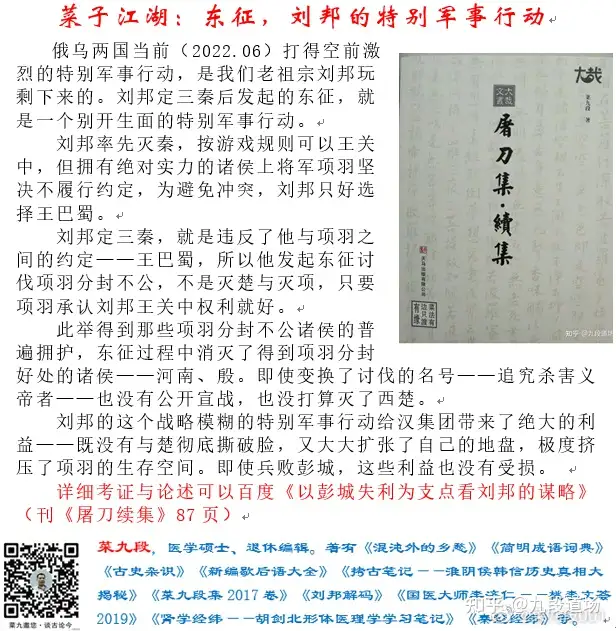 菜子江湖：东征，刘邦的特别军事行动
俄乌两国当前（2022.06）打得空前激
烈的特别军事行动，是我们老祖宗刘邦玩
剩下来的。刘邦定三秦后发起的东征，就
是一个别开生面的特别军事行动。
刘邦率先灭秦，按游戏规则可以王关
中，但拥有绝对实力的诸侯上将军项羽坚
决不履行约定，为避免冲突，刘邦只好选
择王巴蜀。
刘邦定三秦，就是违反了他与项羽之
间的约定——王巴蜀，所以他发起东征讨
伐项羽分封不公，不是灭楚与灭项，只要
项羽承认刘邦王关中权利就好。
此举得到那些项羽分封不公诸侯的普
遍拥护，东征过程中消灭了得到项羽分封
好处的诸侯——河南、殷。即使变换了讨伐的名号——追究杀害义
帝者——也没有公开宣战，也没打算灭了西楚。
刘邦的这个战略模糊的特别军事行动给汉集团带来了绝大的利
益——既没有与楚彻底撕破脸，又大大扩张了自己的地盘，极度挤
压了项羽的生存空间。即使兵败彭城，这些利益也没有受损。
详细考证与论述可以百度《以彭城失利为支点看刘邦的谋略》
（刊《屠刀续集》87 页）
大哉
大哉
文丛
菜九段 著
屠刀集·續集
知乎 @九段道场
菜九段，医学硕士、退休编辑。著有《混沌外的乡愁》《简明成语词典》
《古史杂识》《新编歇后语大全》《挎古笔记——淮阴侯韩信历史真相大
揭秘》《菜九段集 2017 卷》《刘邦解码》《国医大师李济仁
2019》《肾学经纬——胡剑北形体医理学学习笔记》
菜九邀您·谈古论今
知乎 @九段道场